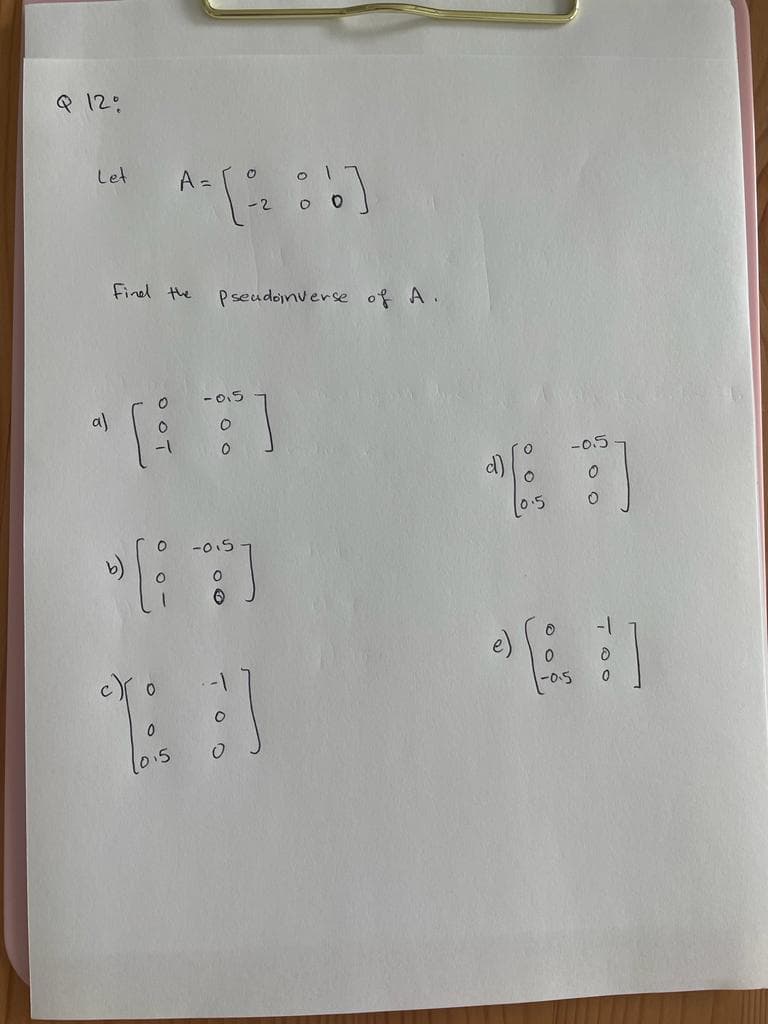 Q 12:
Let A = [ 0 0 1
-2 0 0 ]
Find the pseudoinverse of A.
a) [ 0 -0.5
0 0
-1 0 ]
b) [ 0 -0.5
0 0
1 0 ]
c) [ 0 -1
0 0
0.5 0 ]
d) [ 0 -0.5
0 0
0.5 0 ]
e) [ 0 -1
0 0
-0.5 0 ]